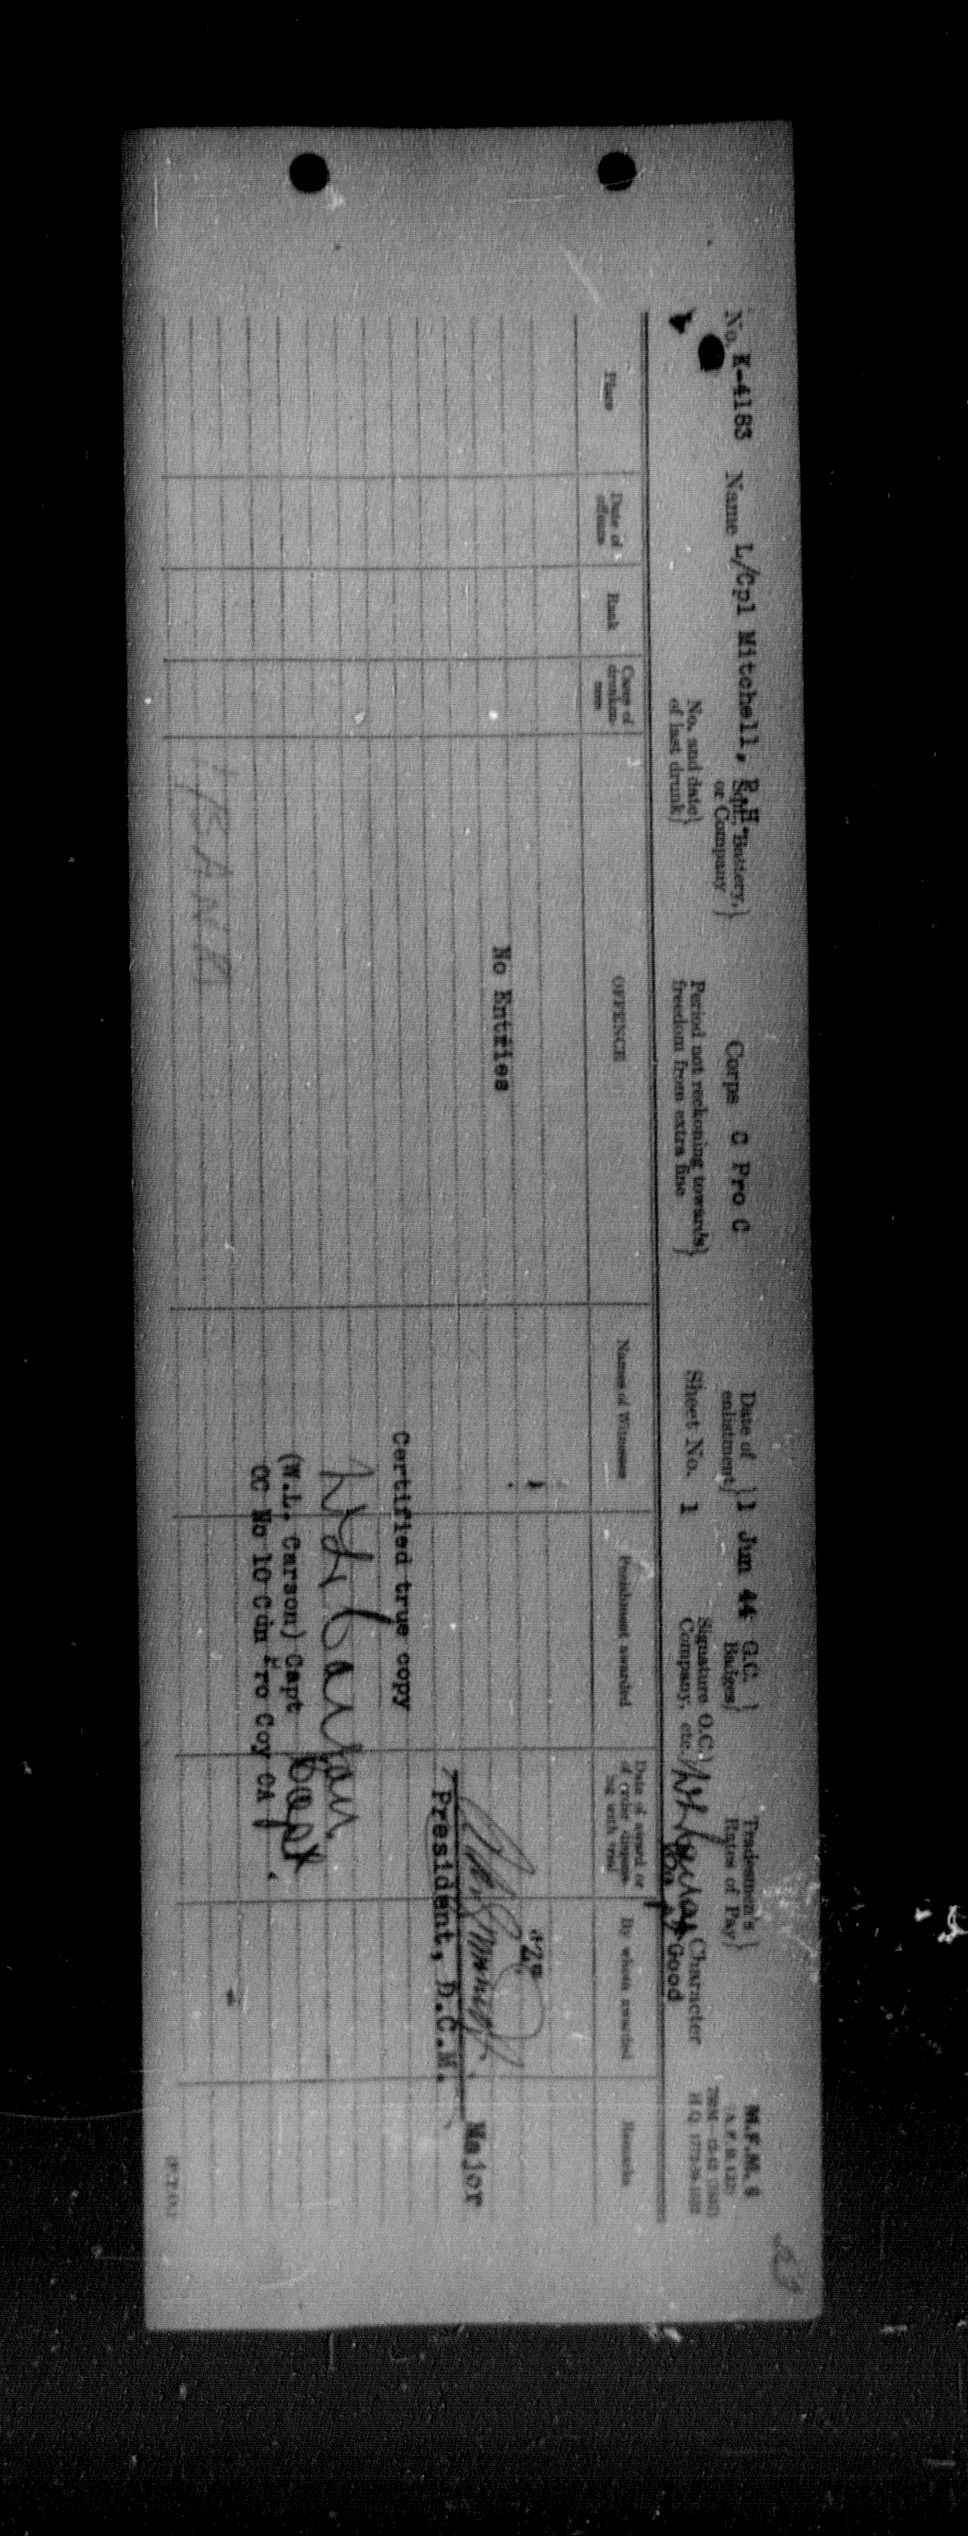 M.F.M. 6
No. K-4183 Name L/Cpl Mitchell, R.H. Sqn. Battery, or Company Corps C Pro C Date of enlistment 1 Jun 44 G.C. Badges Tradesmen's Rates of Pay
No. and date of last drunk Period not reckoning towards freedom from extra fine Sheet No. 1 Signature O.C. Company, etc. Character Good
Place Date of offence Rank Cases of drunkenness OFFENCE Names of Witnesses Punishment awarded Date of award or of order dispensing with trial By whom awarded Remarks
"Z"
No Entries
Major
President, D.C.M.
Certified true copy
W.L. Carson Capt
(W.L. Carson) Capt
OC No 10 Cdn Pro Coy CA
(P.T.O.)